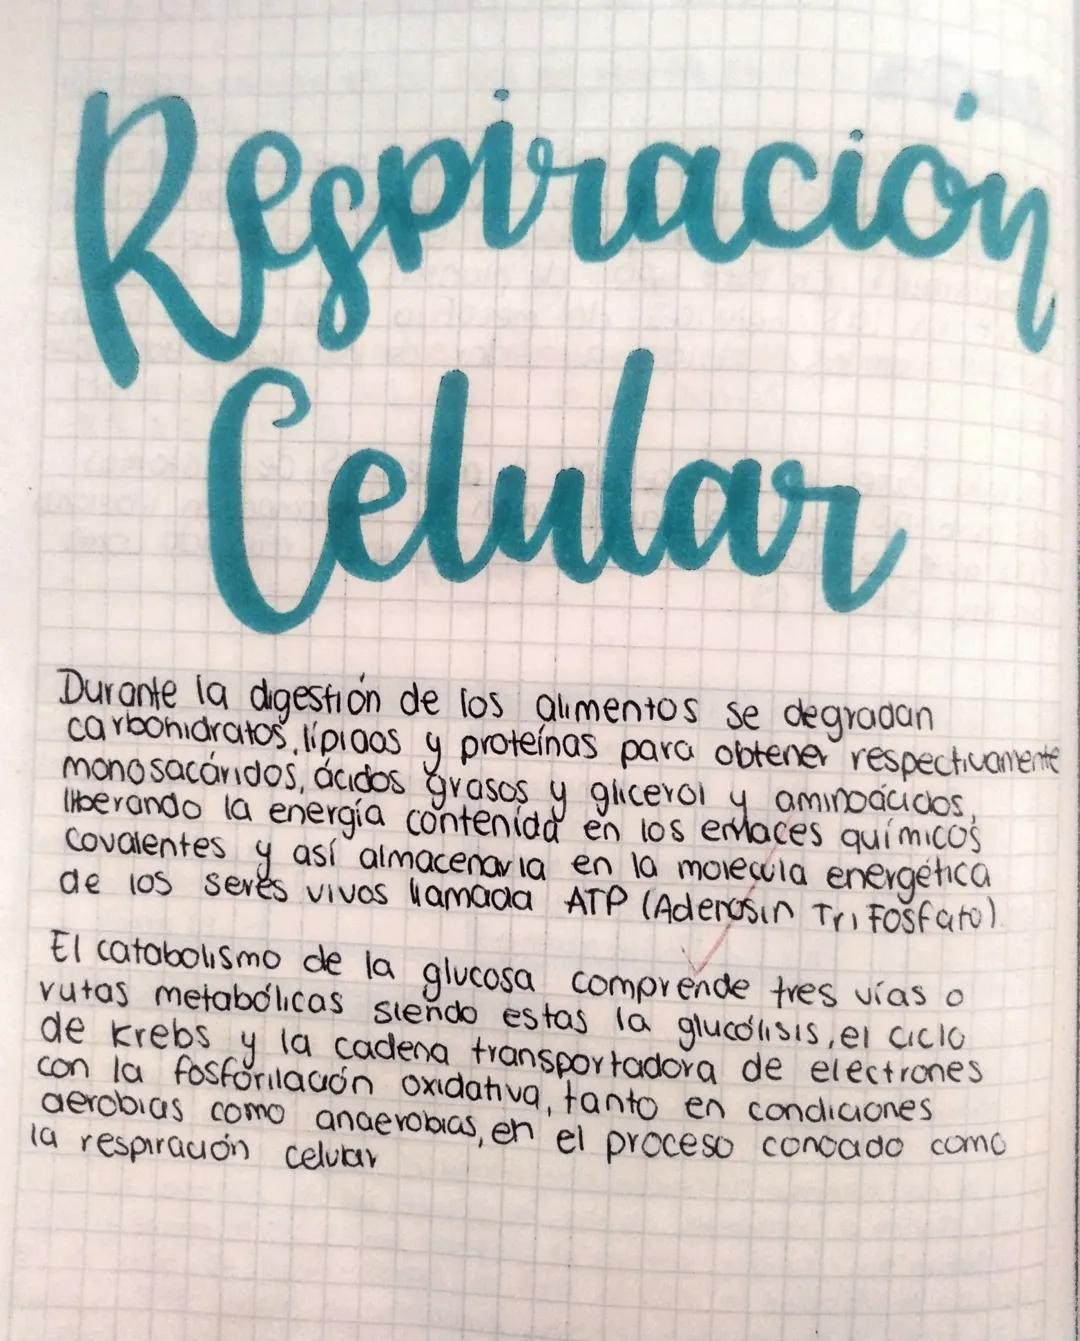 Respiración
Celular
Durante la digestión de los alimentos se degradan
carbohidratos, lípidos y proteínas para obtener respectivamente
monosacáridos, ácidos grasos y glicerol y aminoácidos,
liberando la energía contenida en los enlaces químicos
covalentes y así almacenarla en la molecula energética
de los seres vivos llamada ATP (Adenosin Tri Fosfato)
El catabolismo de la glucosa comprende tres vías o
rutas metabólicas siendo estas la glucólisis, el ciclo
de Krebs y la cadena transportadora de electrones
con la fosforilación oxidativa, tanto en condiciones
aerobias como anaerobias, en el proceso conocado como
la respiración celular